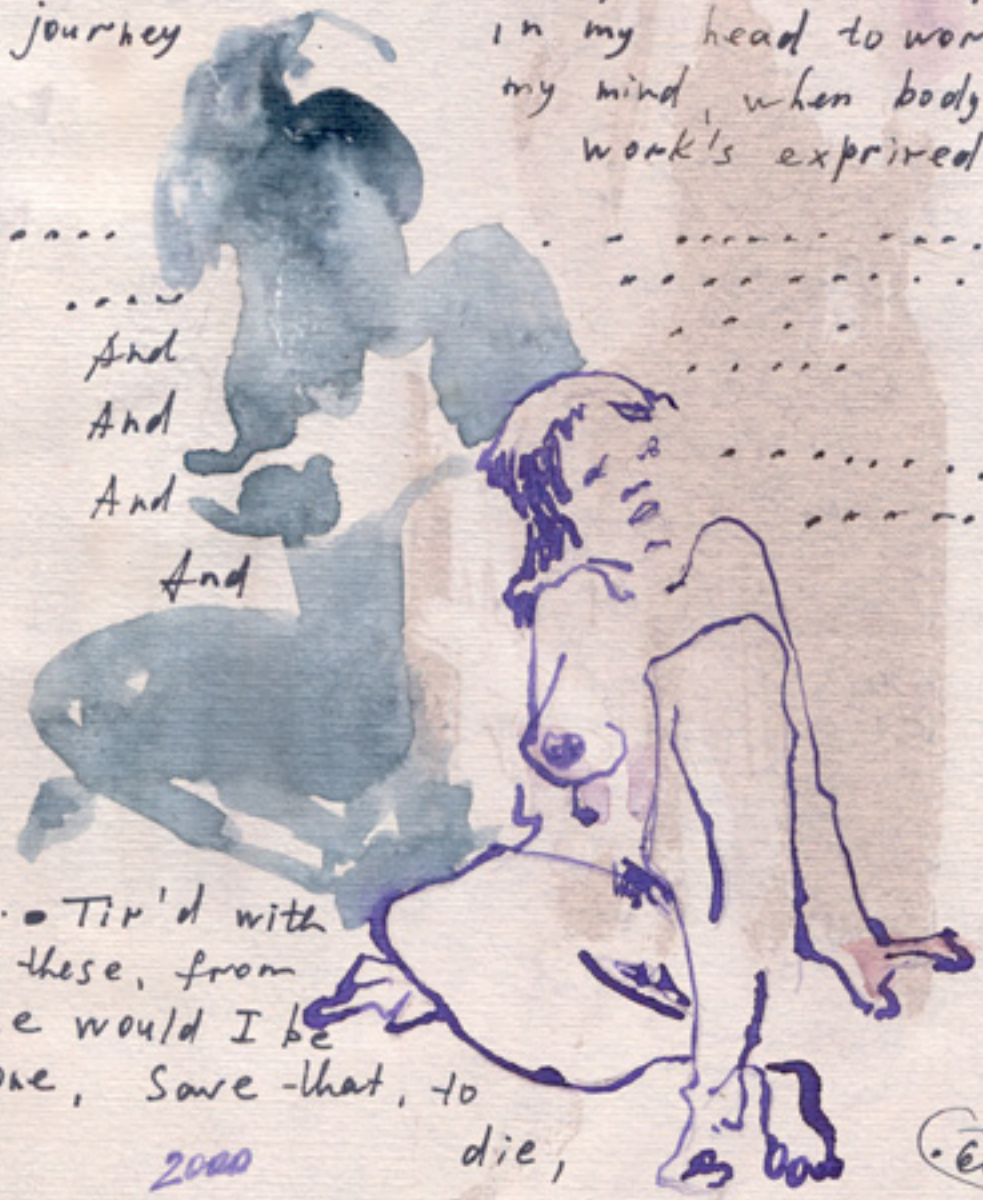 journey in my head to wor
my mind, when body
work's exprired
And
And
And
And
Tir'd with
these, from
e would I be
one, Save that, to
die,
2000